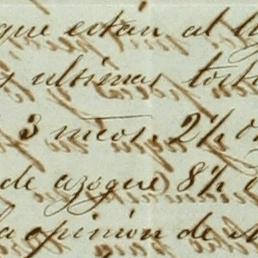 que están al
s ultimas
3 meses. 2½ o
de azogue 8½
la opinión de